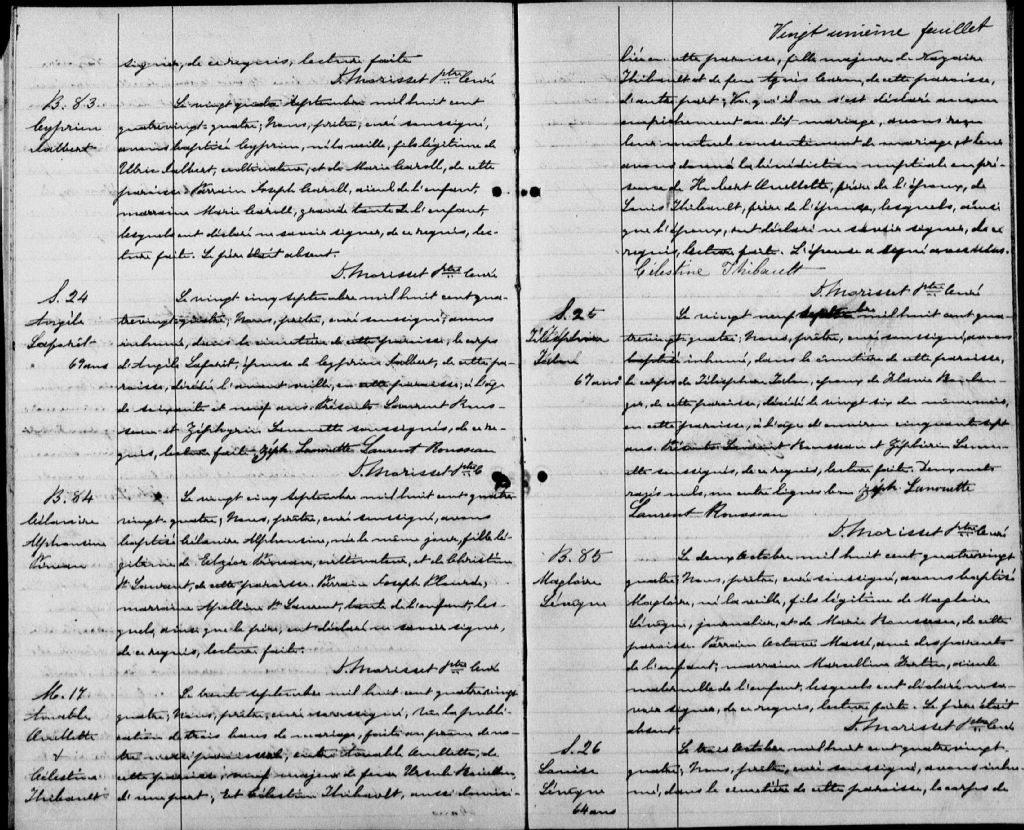 signer, de ce requis, lecture faite
D. Morisset Ptre Curé
B. 83
Cyprien
Jalbert
Le vingt quatre Septembre mil huit cent
quatrevingt-quatre; Nous, prêtre, curé soussigné,
avons baptisé Cyprien, né la veille, fils légitime de
Ulric Jalbert, cultivateur, et de Marie Caroll, de cette
paroisse. Parrain Joseph Caroll, aïeul de l'enfant,
marraine Marie Caroll, grande tante de l'enfant,
lesquels ont déclaré ne savoir signer, de ce requis, lec-
ture faite. Le père était absent.
D. Morisset Ptre Curé
S. 24
Angèle
69 ans
Le vingt cinq septembre mil huit cent qua-
trevingt-quatre; Nous, prêtre, curé soussigné, avons
inhumé, dans le cimetière de cette paroisse, le corps
d'Angèle épouse de Cyprien Jalbert, de cette pa-
roisse, décédée l'avant veille, en cette paroisse, à l'âge
de soixante et neuf ans. Présents Laurent Rous-
seau et Zéphyrin Lanouette soussignés, de ce re-
quis, lecture faite. Zéph. Lanouette Laurent Rousseau
D. Morisset Ptre C
B. 84
Célanire
Alphonsine
Le vingt cinq septembre mil huit cent quatre
vingt-quatre; Nous, prêtre, curé soussigné, avons
baptisé Célanire Alphonsine, née le même jour, fille lé-
gitime de Elzéar cultivateur, et de Christine
St Laurent, de cette paroisse. Parrain Joseph Plourde,
marraine Apolline St Laurent, tante de l'enfant, les-
quels, ainsi que le père, ont déclaré ne savoir signer,
de ce requis, lecture faite.
D. Morisset Ptre Curé
M. 17
Amable
Ouellette
+
Célestine
Thibault
Le trente septembre mil huit cent quatrevingt
quatre; Nous, prêtre, curé soussigné, vu la publi-
cation de trois bans de mariage, faite au prône de no-
tre messe paroissiale, entre Amable Ouellette, de
cette paroisse, veuf majeur de feue Ursule
d'une part; Et Célestine Thibault, aussi domici-
Vingt unième feuillet
liée en cette paroisse, fille majeure de Nazaire
Thibault et de feue Agnès Caron, de cette paroisse,
d'autre part; Vu qu'il ne s'est déclaré aucun
empêchement au dit mariage, avons reçu
leur mutuel consentement de mariage et leur
avons donné la bénédiction nuptiale en pré-
sence de Hubert Ouellette, frère de l'époux, de
Louis Thibault, frère de l'épouse, lesquels, ainsi
que l'époux, ont déclaré ne savoir signer, de ce
requis, lecture faite. L'épouse a signé avec nous.
Célestine Thibault
D. Morisset Ptre Curé
S. 25
67 ans
Le vingt neuf septembre mil huit cent qua-
trevingt-quatre; Nous, prêtre, curé soussigné, avons
baptisé inhumé, dans le cimetière de cette paroisse,
le corps de époux de Flavie Boulan-
ger, de cette paroisse, décédé le vingt six du même mois,
en cette paroisse, à l'âge d'environ cinquante sept
ans. Présents Laurent Rousseau et Zéphirin Lanou-
ette soussignés, de ce requis, lecture faite. Deux mots
rayés nuls, un entre lignes bon Zéph. Lanouette
Laurent Rousseau
D. Morisset Ptre Curé
B. 85
Magloire
Lévêque
Le deux Octobre mil huit cent quatrevingt
quatre; Nous, prêtre, curé soussigné, avons baptisé
Magloire, né la veille, fils légitime de Magloire
Lévêque, journalier, et de Marie Rousseau, de cette
paroisse. Parrain Octave Massé, ami des parents
de l'enfant; marraine Marcelline aïeule
maternelle de l'enfant, lesquels ont déclaré ne sa-
voir signer, de ce requis, lecture faite. Le père était
absent.
D. Morisset Ptre Curé
S. 26
Louise
Lévêque
64 ans
Le trois Octobre mil huit cent quatrevingt-
quatre; Nous, prêtre, curé soussigné, avons inhu-
mé, dans le cimetière de cette paroisse, le corps de